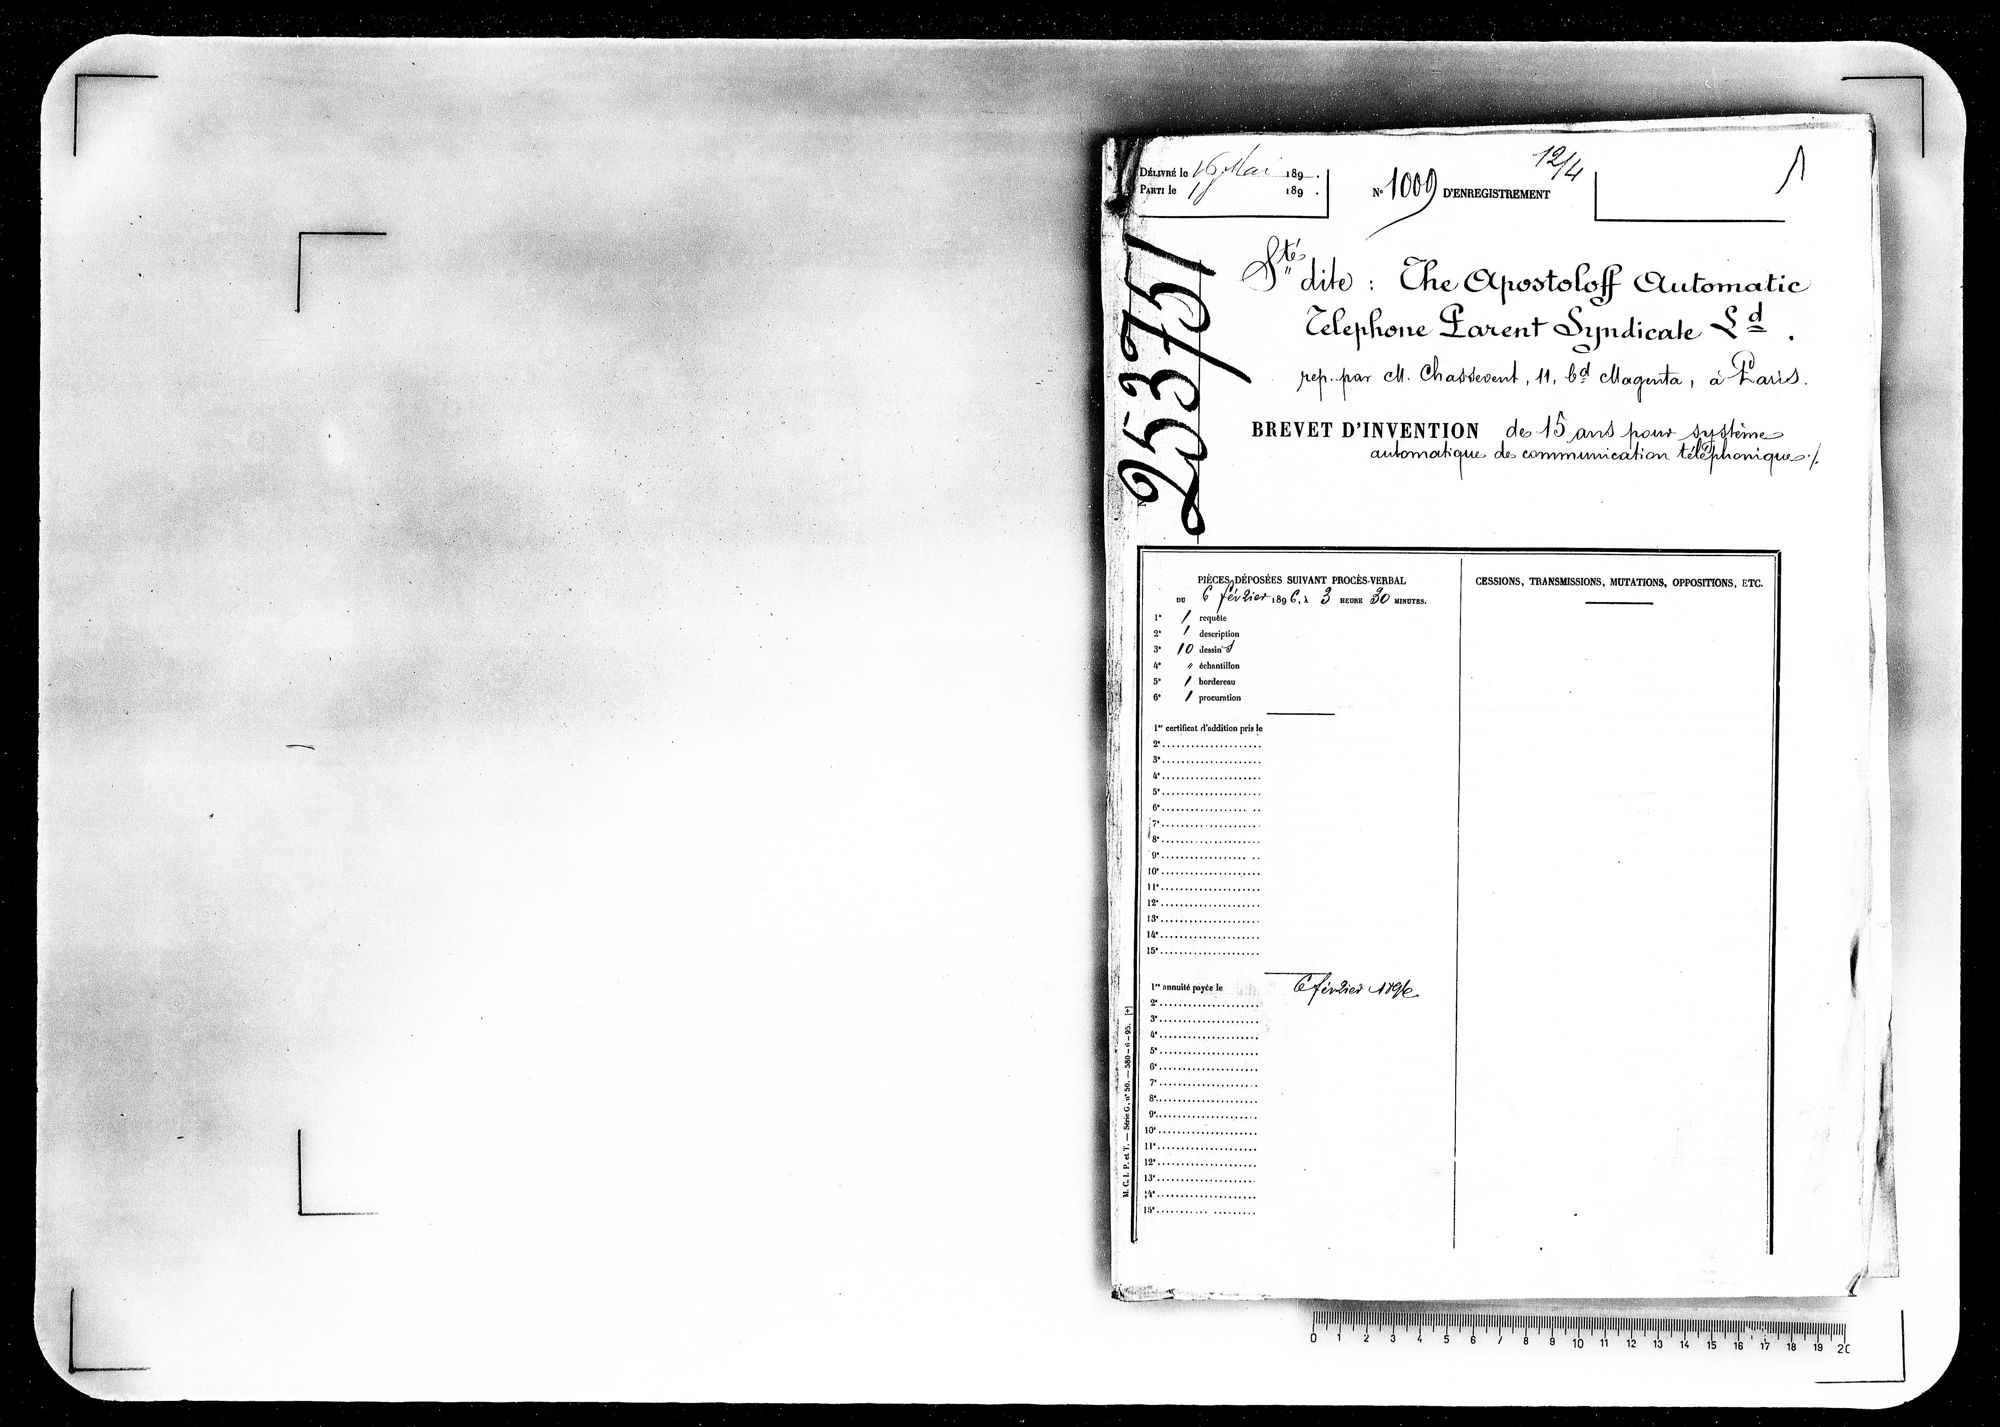 DÉLIVRÉ le 16 Mai 189 .
PARTI le 18 189 .
N° 1009 D'ENREGISTREMENT
12/4
253751
Sté dite : The Apostoloff Automatic
Telephone Parent Syndicate Ld .
rep. par M. Chassevent, 11, bd Magenta, à Paris.
BREVET D'INVENTION de 15 ans pour système
automatique de communication téléphonique ./.
PIÈCES DÉPOSÉES SUIVANT PROCÈS-VERBAL
DU 6 février 1896, à 3 HEURE 30 MINUTES.
1° 1 requête
2° 1 description
3° 10 dessins
4° " échantillon
5° 1 bordereau
6° 1 procuration
1er certificat d'addition pris le
2e
3e
4e
5e
6e
7e
8e
9e
10e
11e
12e
13e
14e
15e
1re annuité payée le 6 février 1896
2e
3e
4e
5e
6e
7e
8e
9e
10e
11e
12e
13e
14e
15e
CESSIONS, TRANSMISSIONS, MUTATIONS, OPPOSITIONS, ETC.
M. C. I. P. et T. — Série G, n° 50. — 580-6-95. [*]
0 1 2 3 4 5 6 7 8 9 10 11 12 13 14 15 16 17 18 19 20